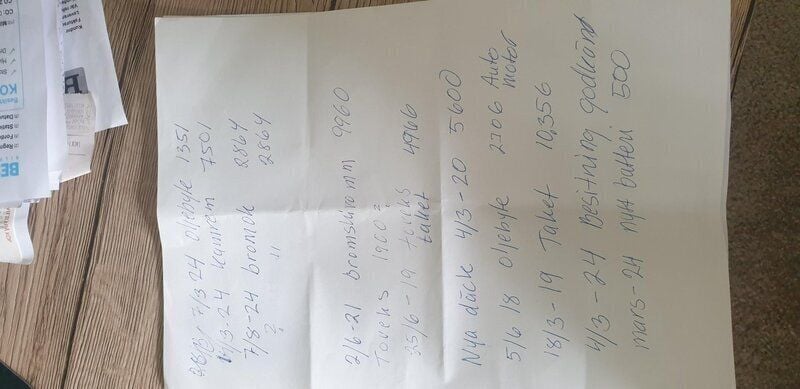 7/3-24 oljebyte 1351
/3-24 Kamrem 7501
7/8-24 bromok 2864
? " 2864
2/6-21 bromskivor mm 9960
Toveks 1900?
25/6-19 toveks 4966
taket
Nya däck 4/3-20 5600
5/6 18 oljebyte 2706 Auto
motor
18/3-19 Taket 10,356
4/3-24 Besitning godkänd
mars-24 nytt batteri 500
BE
KO